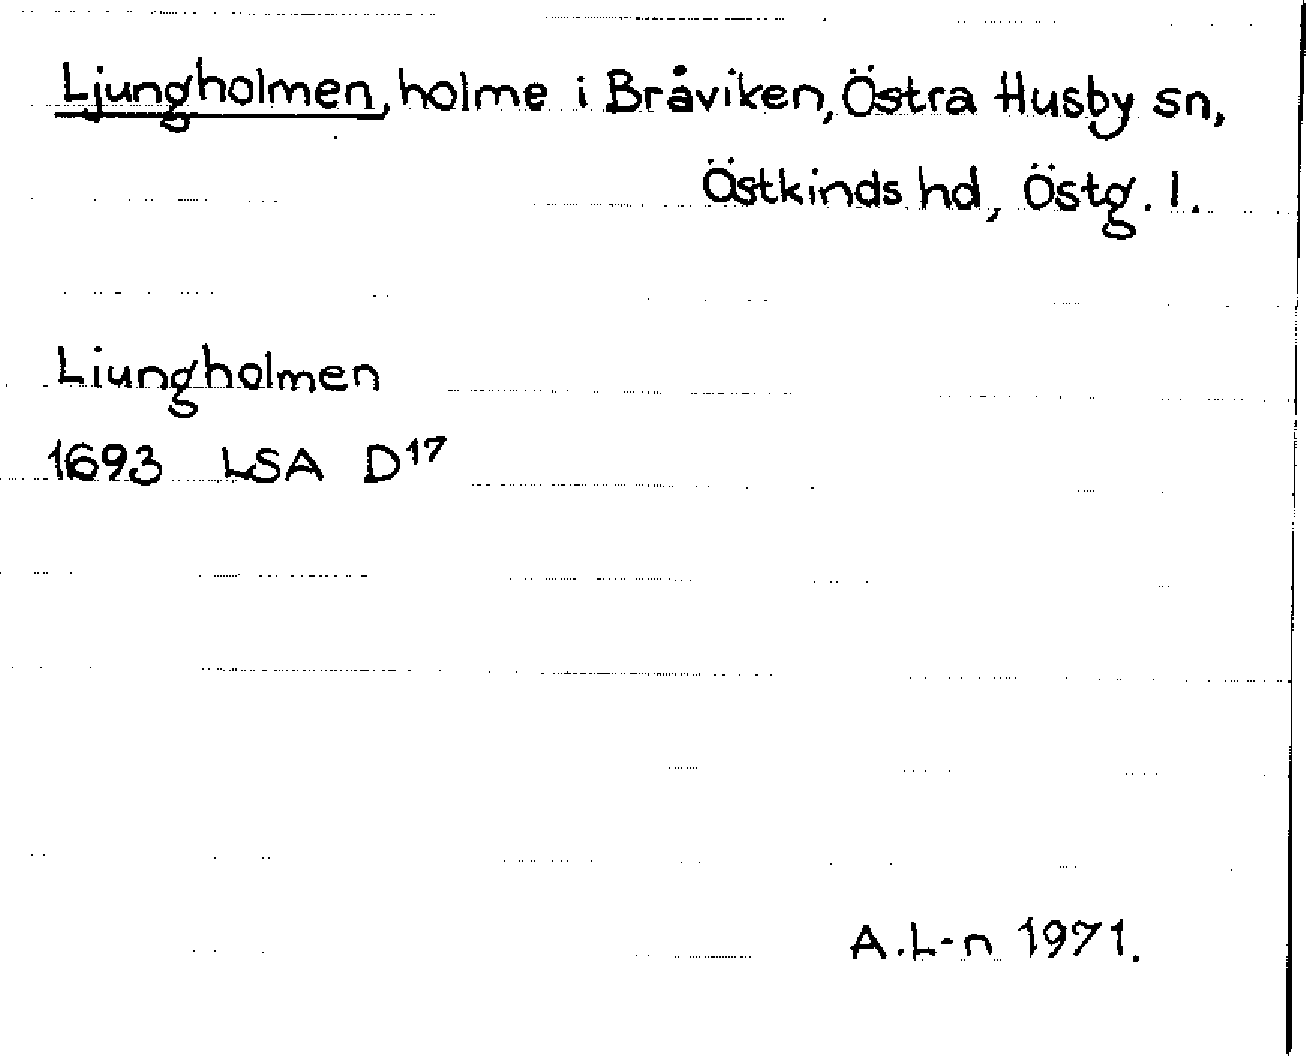 Ljungholmen, holme i Bråviken, Östra Husby sn,
Östkinds hd, Östg. l.
Liungholmen
1693 LSA D17
A.L-n 1971.